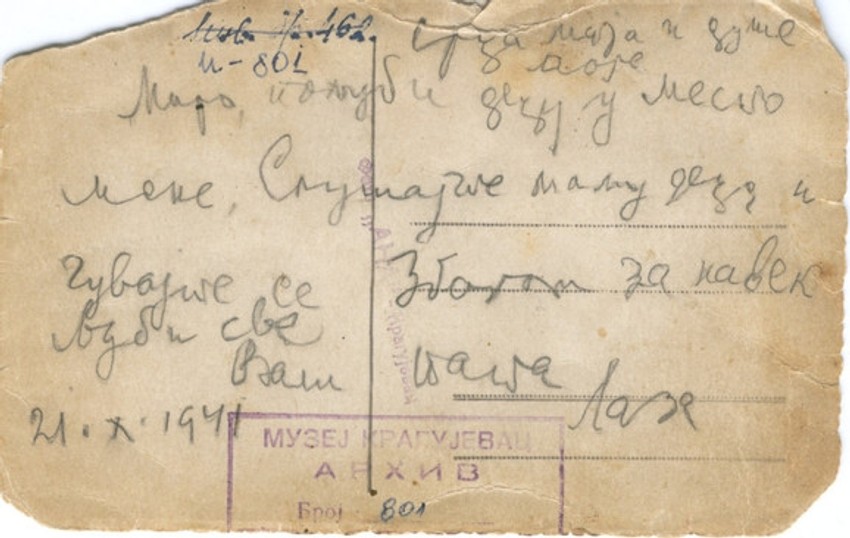 Инв. № 462.
И-801
срца моја и душе
моје
Маро, пољуби децу у место
мене, Слушајте маму децо и
чувајте се Збогом за навек
љуби све
Ваш тата Лаза
21.X.1941
МУЗЕЈ КРАГУЈЕВАЦ
АРХИВ
Број 801